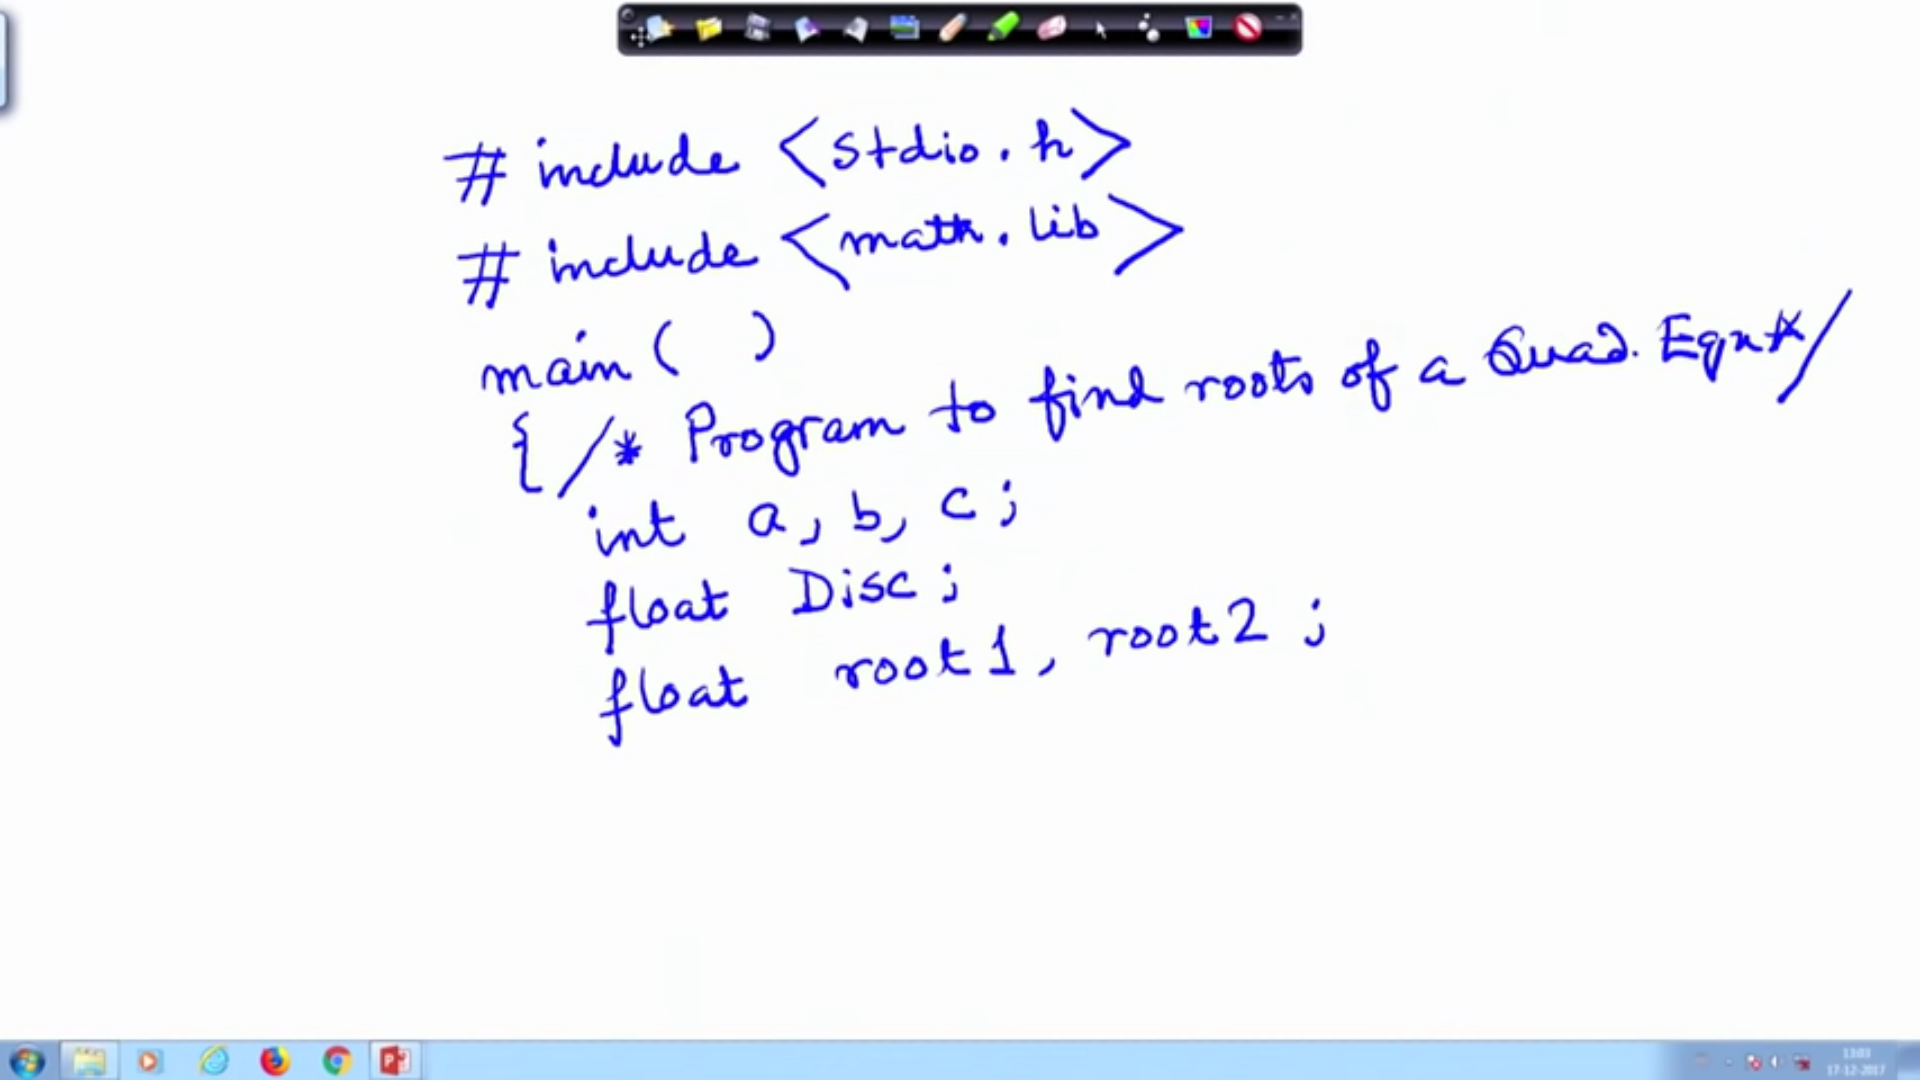 # include <stdio.h>
# include <math.lib>
main ( )
{ /* Program to find roots of a Quad. Eqn */
int a, b, c ;
float Disc ;
float root1, root2 ;
13:03
17-12-2017